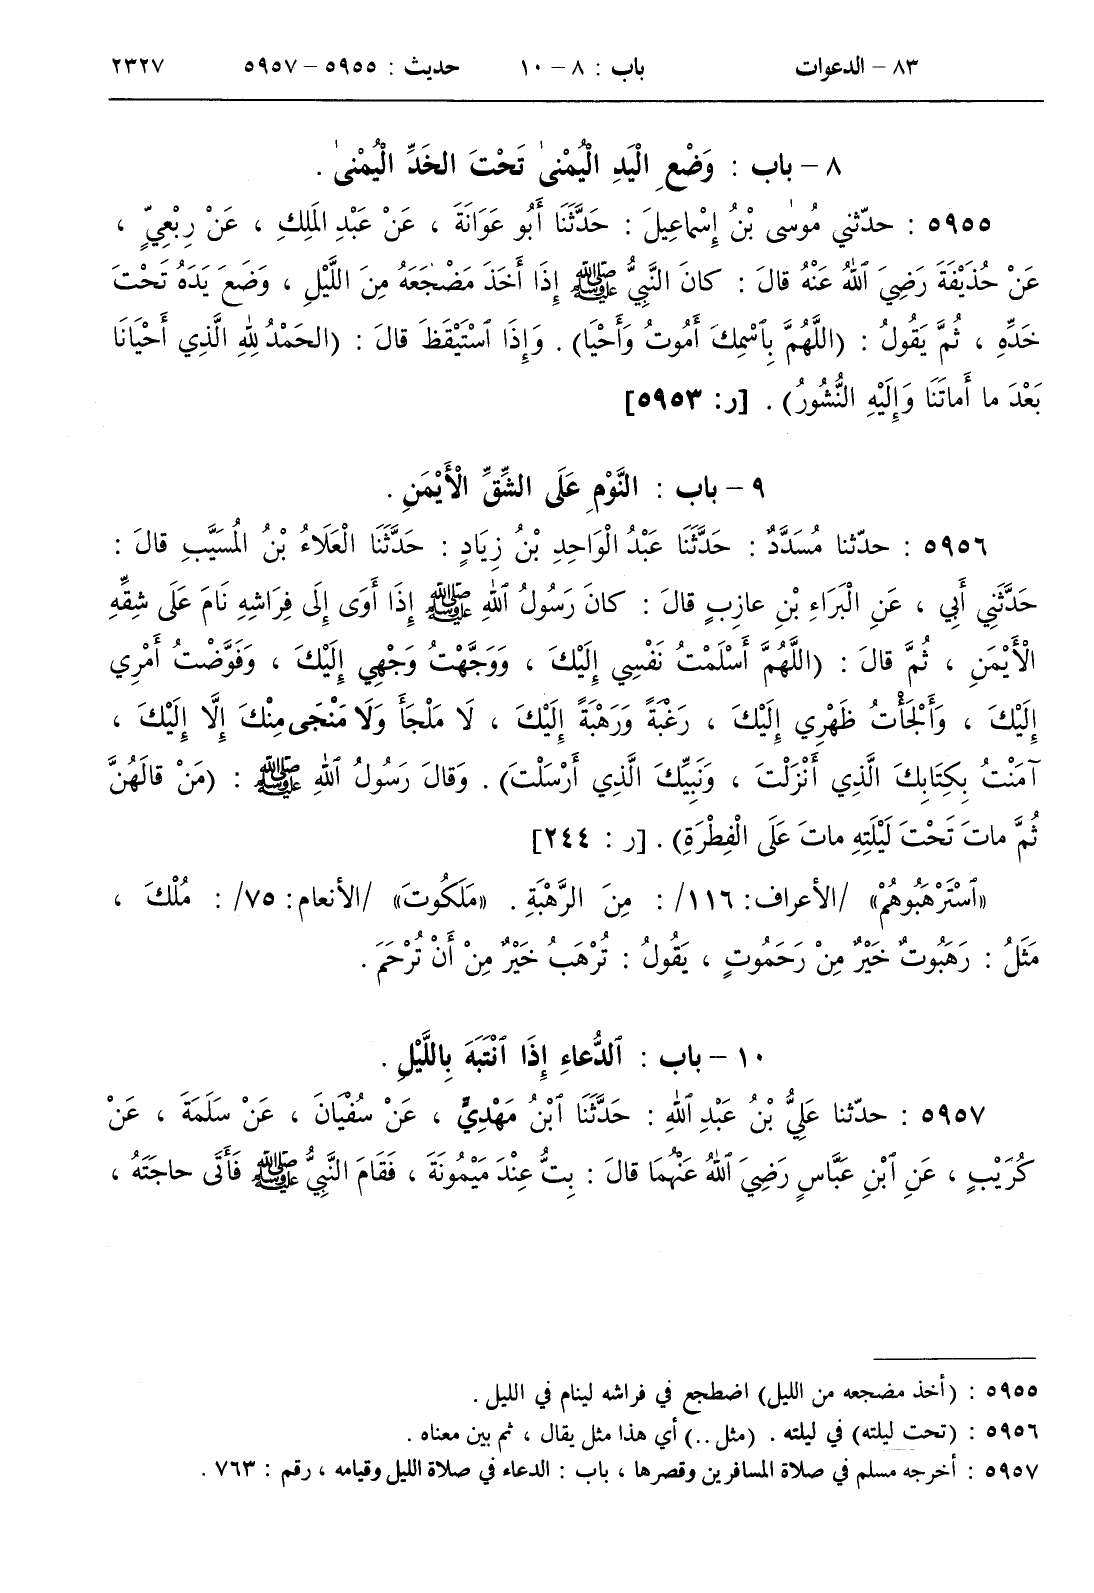 ٨٣ – الدعوات باب : ٨ – ١٠ حديث : ٥٩٥٥ – ٥٩٥٧ ٢٣٢٧
٨ – باب : وَضْعِ الْيَدِ الْيُمْنىٰ تَحْتَ الخَدِّ الْيُمْنىٰ .
٥٩٥٥ : حدّثني مُوسٰى بْنُ إِسْماعِيلَ : حَدَّثَنَا أَبُو عَوَانَةَ ، عَنْ عَبْدِ المَلِكِ ، عَنْ رِبْعِيٍّ ،
عَنْ حُذَيْفَةَ رَضِيَ ٱللهُ عَنْهُ قالَ : كانَ النَّبِيُّ ﷺ إِذَا أَخَذَ مَضْجَعَهُ مِنَ اللَّيْلِ ، وَضَعَ يَدَهُ تَحْتَ
خَدِّهِ ، ثُمَّ يَقُولُ : (اللَّهُمَّ بِٱسْمِكَ أَمُوتُ وَأَحْيَا) . وَإِذَا ٱسْتَيْقَظَ قالَ : (الحَمْدُ لِلهِ الَّذِي أَحْيَانَا
بَعْدَ ما أَماتَنَا وَإِلَيْهِ النُّشُورُ) . [ر: ٥٩٥٣]
٩ – باب : النَّوْمِ عَلَى الشِّقِّ الْأَيْمَنِ .
٥٩٥٦ : حدّثنا مُسَدَّدٌ : حَدَّثَنَا عَبْدُ الْوَاحِدِ بْنُ زِيَادٍ : حَدَّثَنَا الْعَلَاءُ بْنُ المُسَيَّبِ قالَ :
حَدَّثَنِي أَبِي ، عَنِ الْبَرَاءِ بْنِ عازِبٍ قالَ : كانَ رَسُولُ ٱللهِ ﷺ إِذَا أَوَى إِلَى فِرَاشِهِ نَامَ عَلَى شِقِّهِ
الْأَيْمَنِ ، ثُمَّ قالَ : (اللَّهُمَّ أَسْلَمْتُ نَفْسِي إِلَيْكَ ، وَوَجَّهْتُ وَجْهِي إِلَيْكَ ، وَفَوَّضْتُ أَمْرِي
إِلَيْكَ ، وَأَلْجَأْتُ ظَهْرِي إِلَيْكَ ، رَغْبَةً وَرَهْبَةً إِلَيْكَ ، لَا مَلْجَأَ وَلَا مَنْجَى مِنْكَ إِلَّا إِلَيْكَ ،
آمَنْتُ بِكِتَابِكَ الَّذِي أَنْزَلْتَ ، وَنَبِيِّكَ الَّذِي أَرْسَلْتَ) . وَقالَ رَسُولُ ٱللهِ ﷺ : (مَنْ قالَهُنَّ
ثُمَّ ماتَ تَحْتَ لَيْلَتِهِ ماتَ عَلَى الْفِطْرَةِ) . [ر : ٢٤٤]
«ٱسْتَرْهَبُوهُمْ» /الأعراف: ١١٦/ : مِنَ الرَّهْبَةِ . «مَلَكُوتَ» /الأنعام: ٧٥/ : مُلْكَ ،
مَثَلُ : رَهَبُوتٌ خَيْرٌ مِنْ رَحَمُوتٍ ، يَقُولُ : تُرْهَبُ خَيْرٌ مِنْ أَنْ تُرْحَمَ .
١٠ – باب : ٱلدُّعاءِ إِذَا ٱنْتَبَهَ بِاللَّيْلِ .
٥٩٥٧ : حدّثنا عَلِيُّ بْنُ عَبْدِ ٱللهِ : حَدَّثَنَا ٱبْنُ مَهْدِيٍّ ، عَنْ سُفْيَانَ ، عَنْ سَلَمَةَ ، عَنْ
كُرَيْبٍ ، عَنِ ٱبْنِ عَبَّاسٍ رَضِيَ ٱللهُ عَنْهُمَا قالَ : بِتُّ عِنْدَ مَيْمُونَةَ ، فَقَامَ النَّبِيُّ ﷺ فَأَتَى حاجَتَهُ ،
٥٩٥٥ : (أخذ مضجعه من الليل) اضطجع في فراشه لينام في الليل .
٥٩٥٦ : (تحت ليلته) في ليلته . (مثل ..) أي هذا مثل يقال ، ثم بين معناه .
٥٩٥٧ : أخرجه مسلم في صلاة المسافرين وقصرها ، باب : الدعاء في صلاة الليل وقيامه ، رقم : ٧٦٣ .